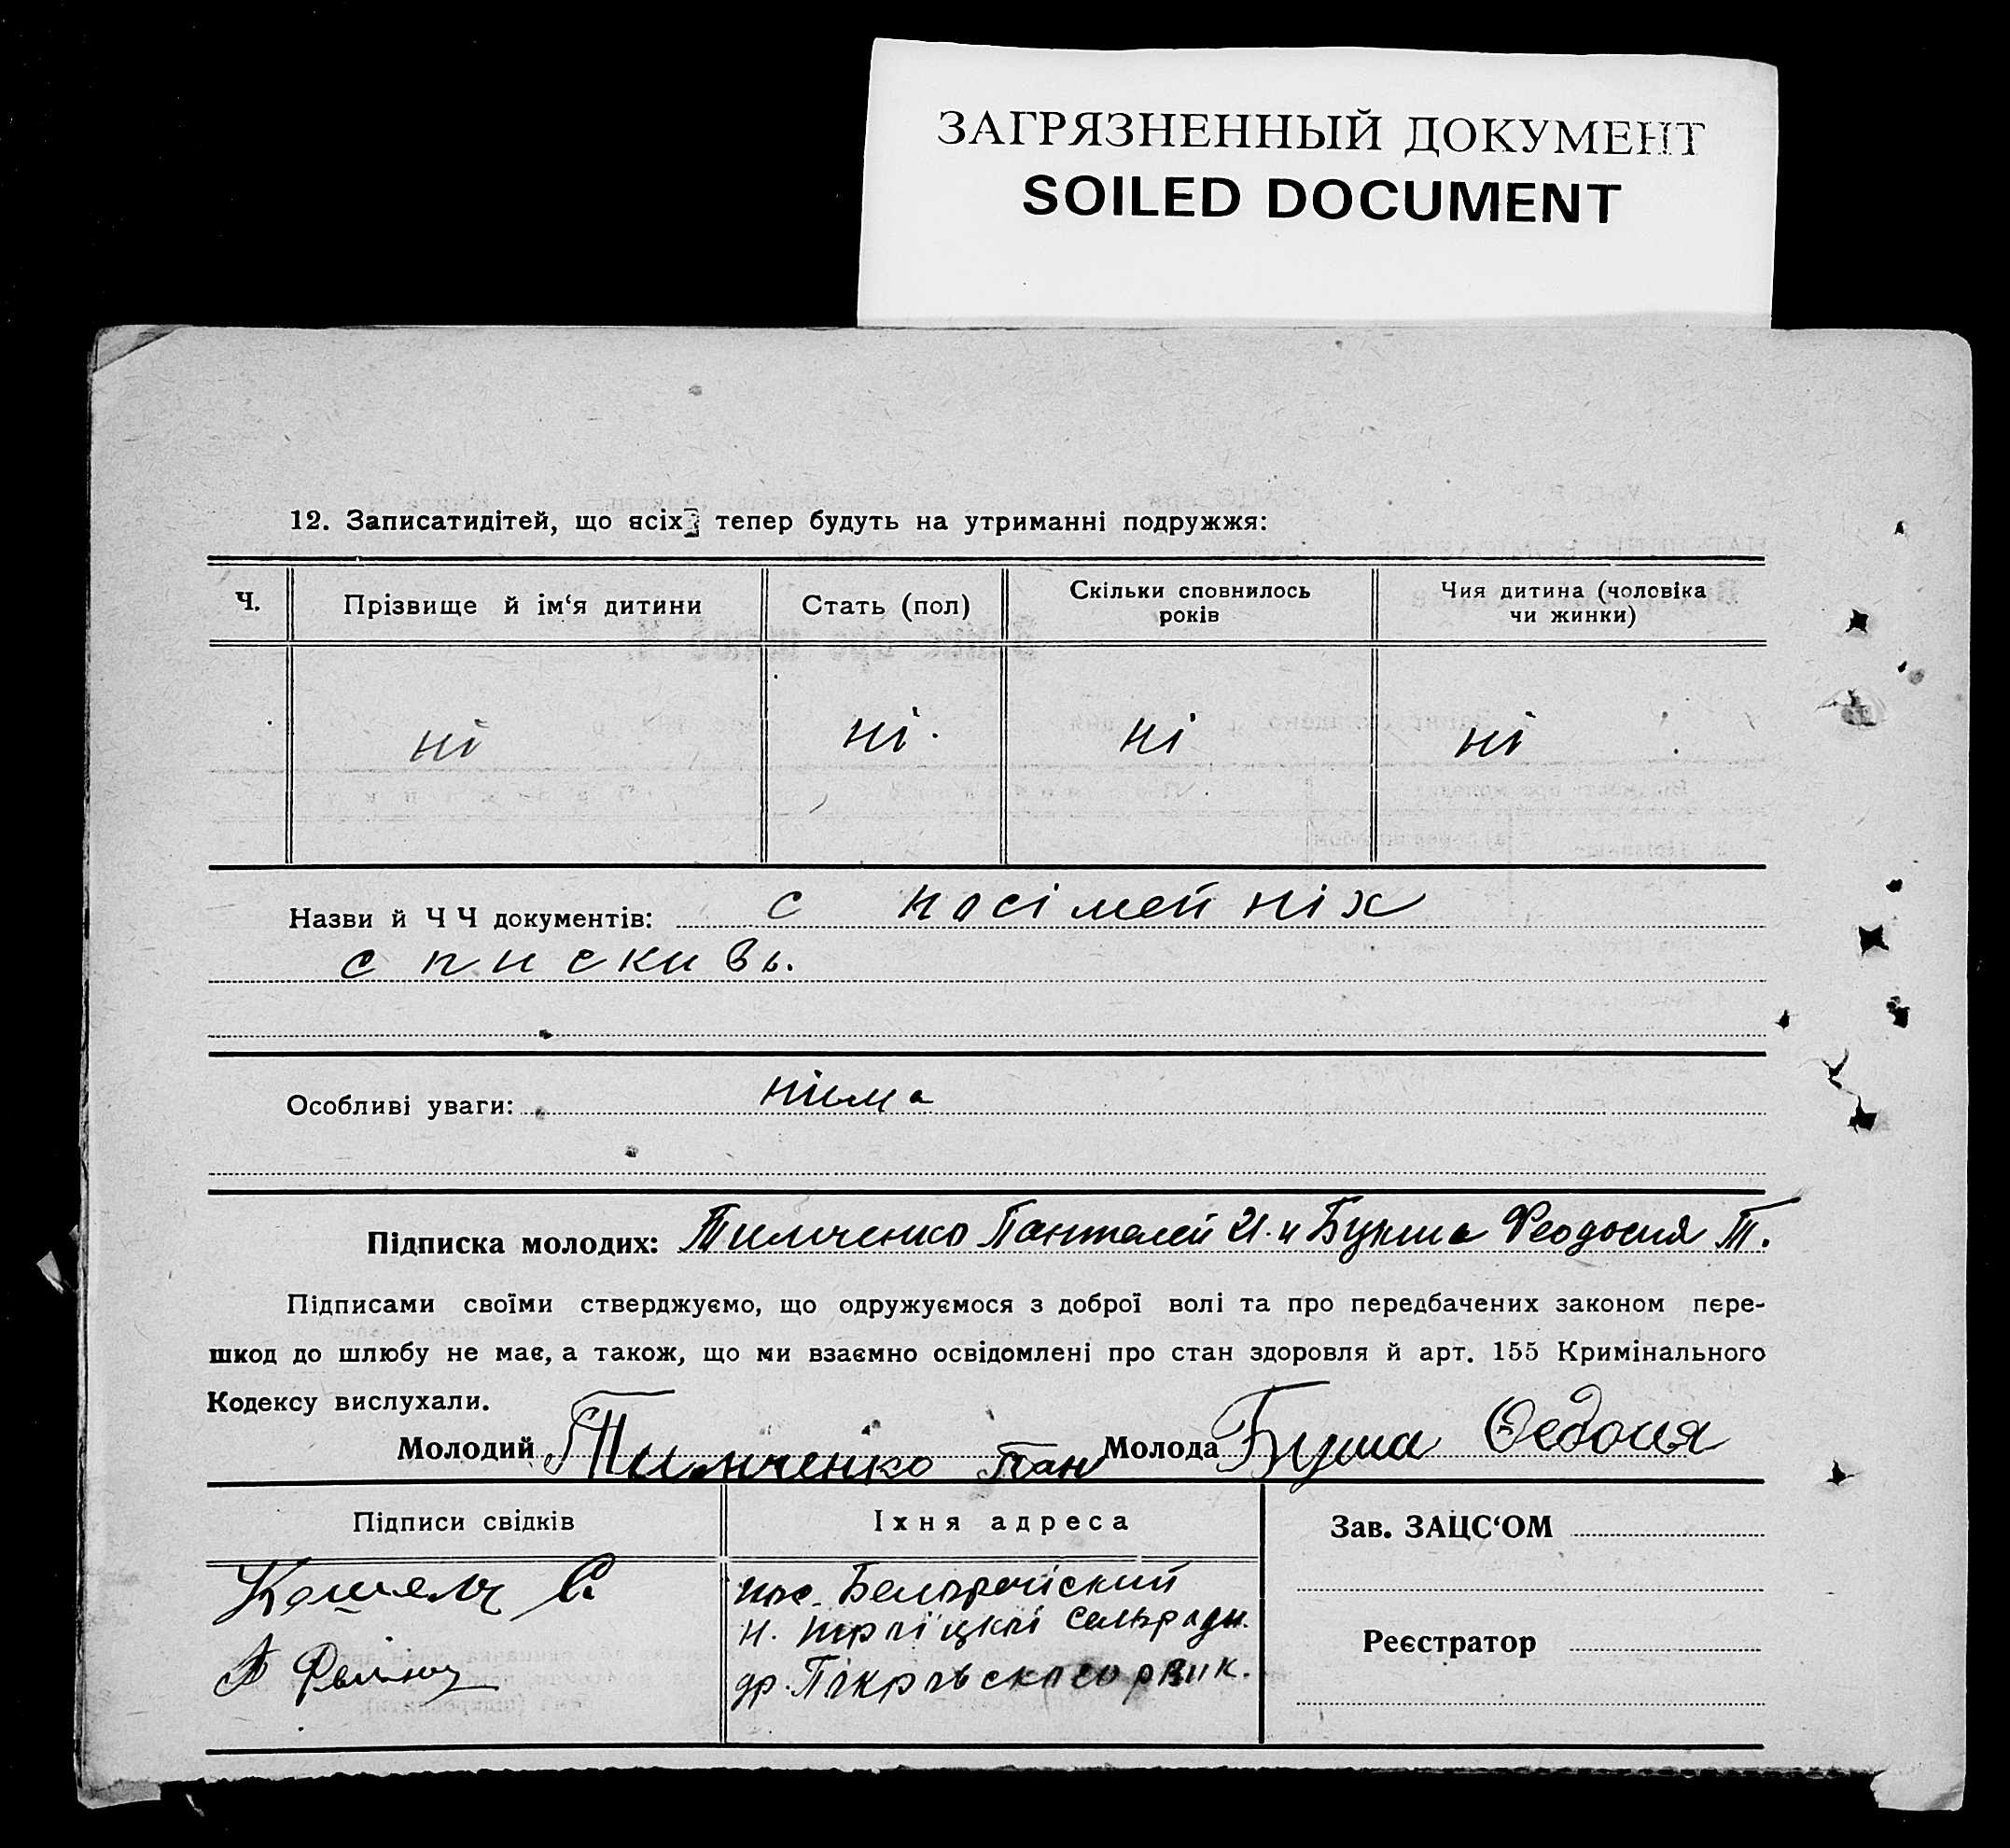 ЗАГРЯЗНЕННЫЙ ДОКУМЕНТ
SOILED DOCUMENT
12. Записатидітей, що всіх тепер будуть на утриманні подружжя:
Ч. Прізвище й ім‘я дитини Стать (пол) Скільки сповнилось років Чия дитина (чоловіка чи жинки)
ні ні. ні ні
Назви й Ч Ч документів: с посімейніх
спискивь.
Особливі уваги: німа
Підписка молодих: Тимченко Пантелей И. и Бурма Феодосия Т.
Підписами своїми стверджуємо, що одружуємося з доброї волі та про передбачених законом пере-
шкод до шлюбу не має, а також, що ми взаємно освідомлені про стан здоровля й арт. 155 Кримінального
Кодексу вислухали.
Молодий Тимченко Пан Молода Бурма Федосия
Підписи свідків Їхня адреса Зав. ЗАЦС‘ОМ
Кошель С. пос.
Н. Троїцкої Сельради.
Реєстратор
др. Покровского рвик.